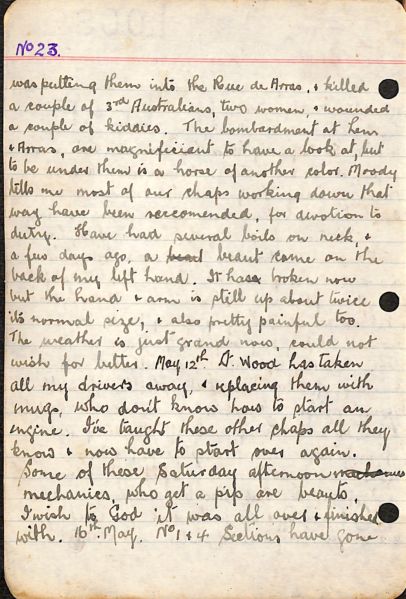 No 23.
was putting them into the Rue de Arras, & killed
a couple of 3rd Australians, two women, & wounded
a couple of kiddies. The bombardment at Lens
& Arras, are magnificient to have a look at, but
to be under them is a horse of another color. Moody
tells me most of our chaps working down that
way have been reccomended, for devotion to
duty. Have had several boils on neck, &
a few days ago, a beaut came on the
back of my left hand. It has broken now
but the hand & arm is still up about twice
its normal size, & also pretty painful too.
The weather is just grand now, could not
wish for better. May 12th Lt. Wood has taken
all my drivers away, & replacing them with
mugs, who don't know how to start an
engine. I've taught these other chaps all they
know & now have to start over again.
Some of these Saturday afternoon
mechanics, who get a pip are beauts,
I wish to God it was all over & finished
with. 16th. May. No 1 & 4 Sections have gone